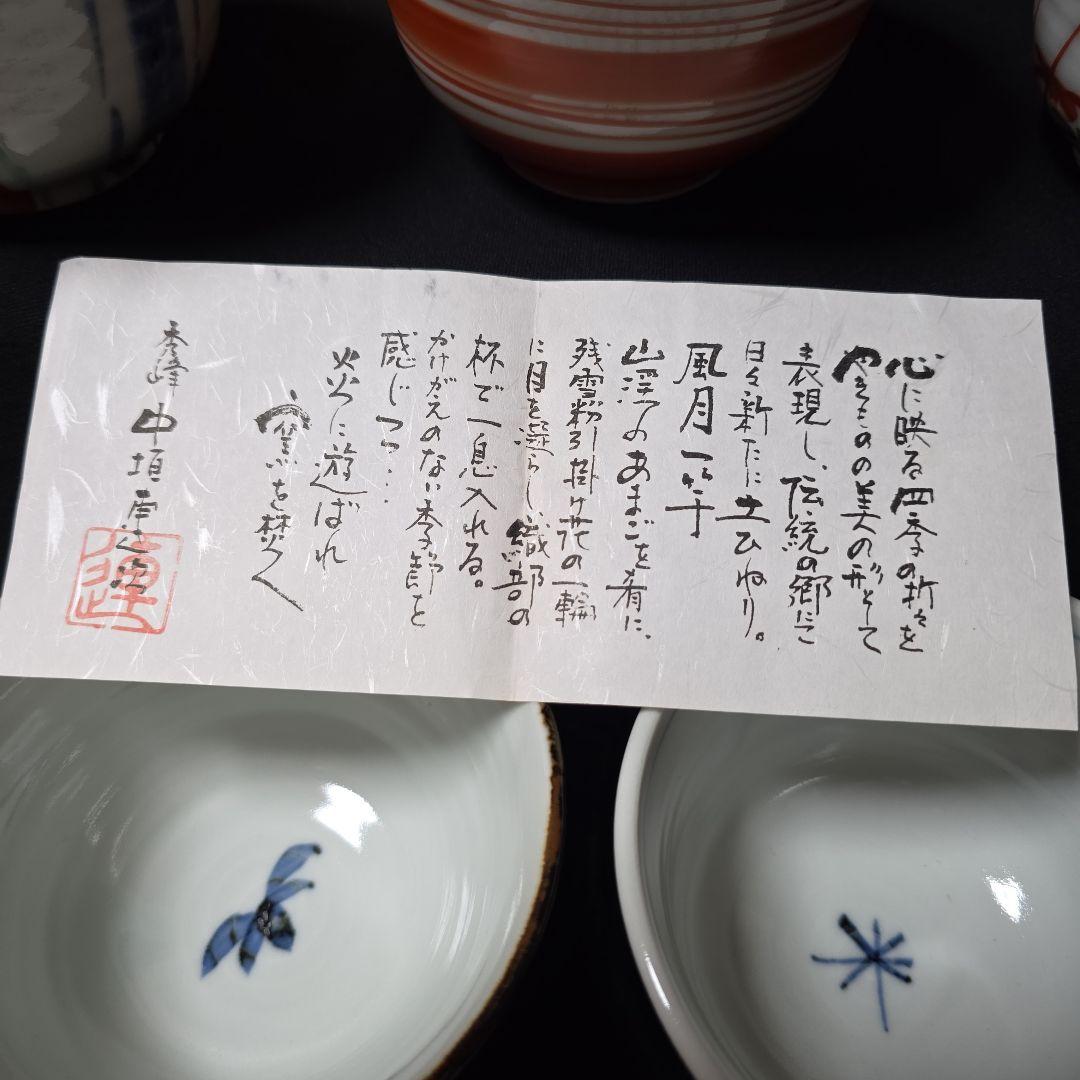 心に映る四季の折々を
やきものの美の形として
表現し、伝統の郷にて
日々新たに土ひねり。
風月一竿
山渓のあまごを肴に、
残雪粉引掛け花の一輪
に目を遊らし織部の
杯で一息入れる。
かけがえのない季節を
感じつつ…
炎に遊ばれ
窯を焚く
秀峰 中垣連次
連